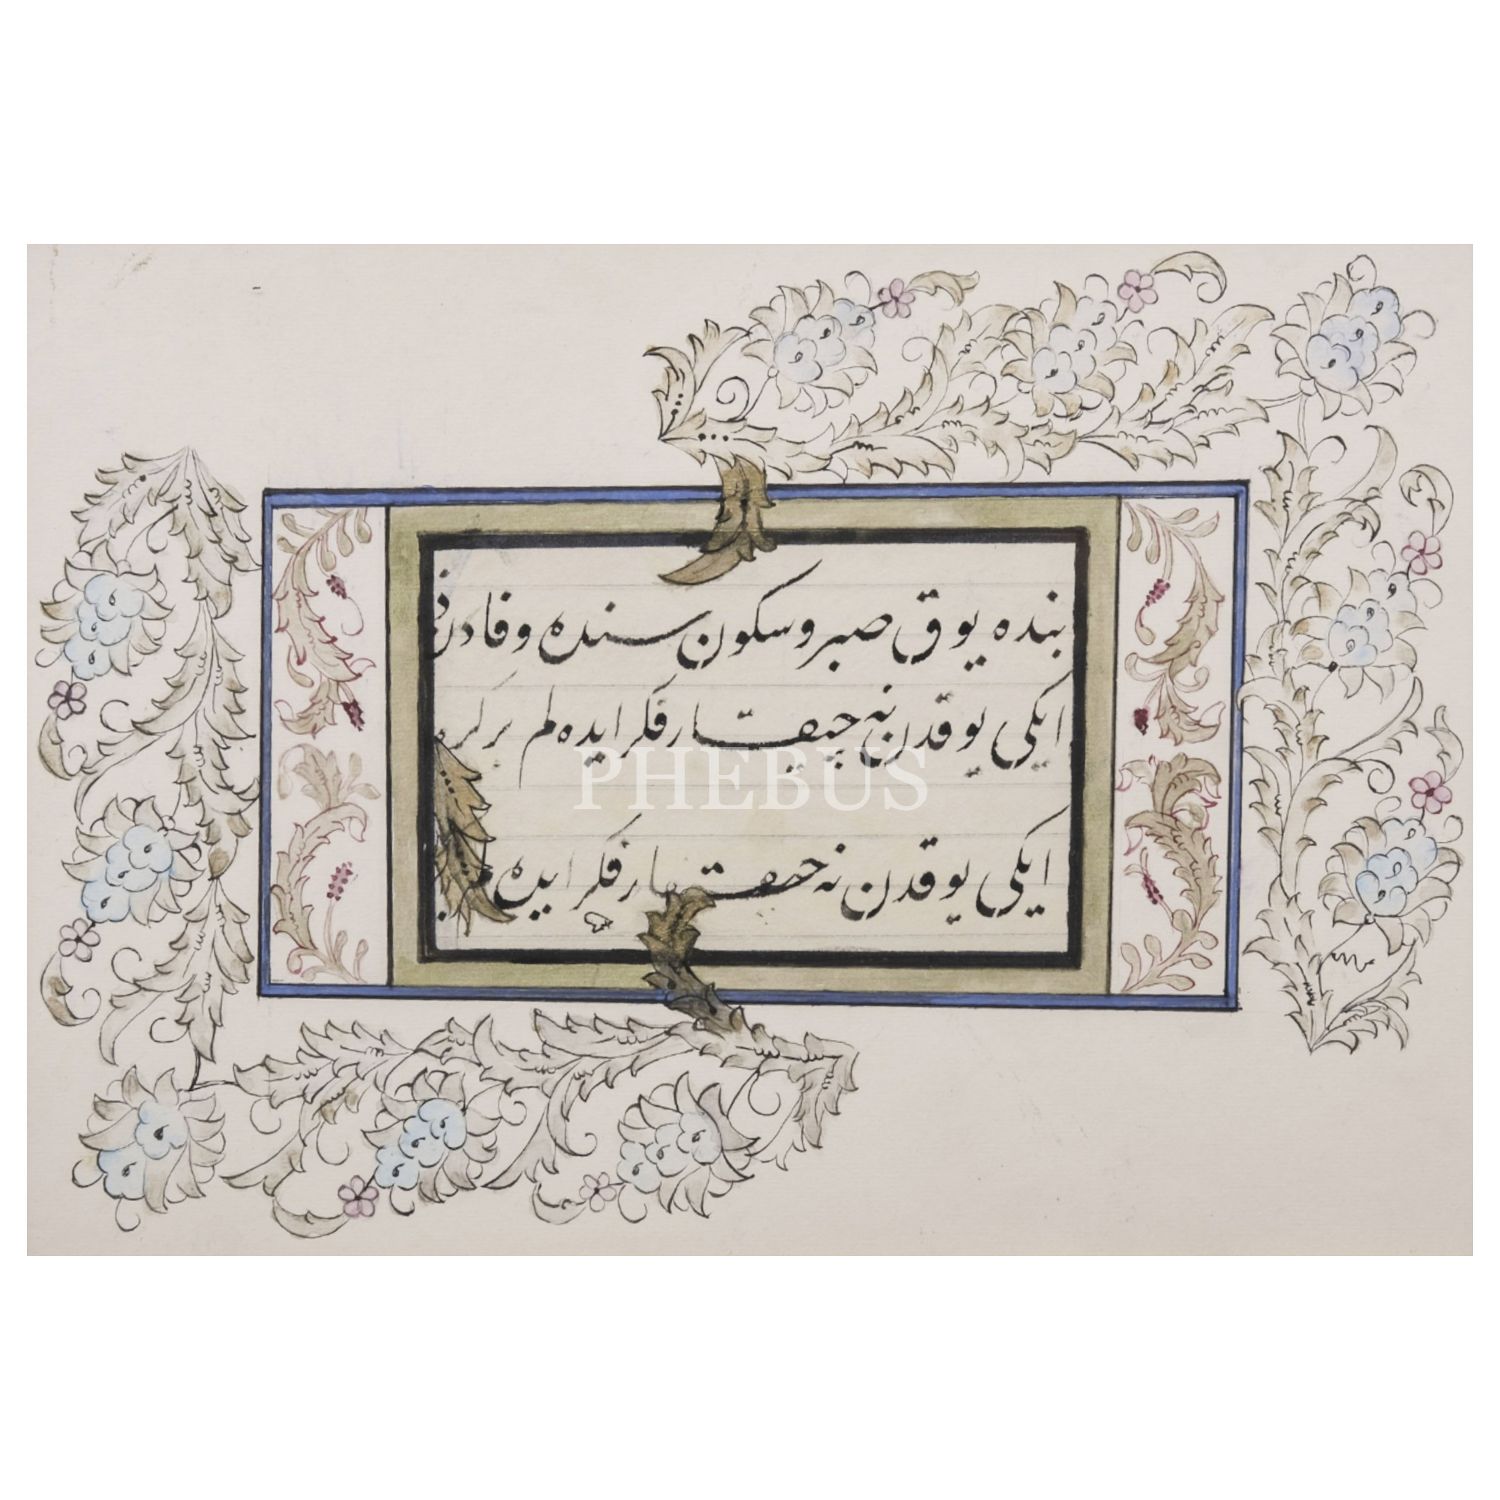 بنده یوق صبر و سکون سنده وفادن ذ
ایکی یوقدن نه چیقار فکر ایده لم بر کره
PHEBUS
ایکی یوقدن نه چیقار فکر ایده